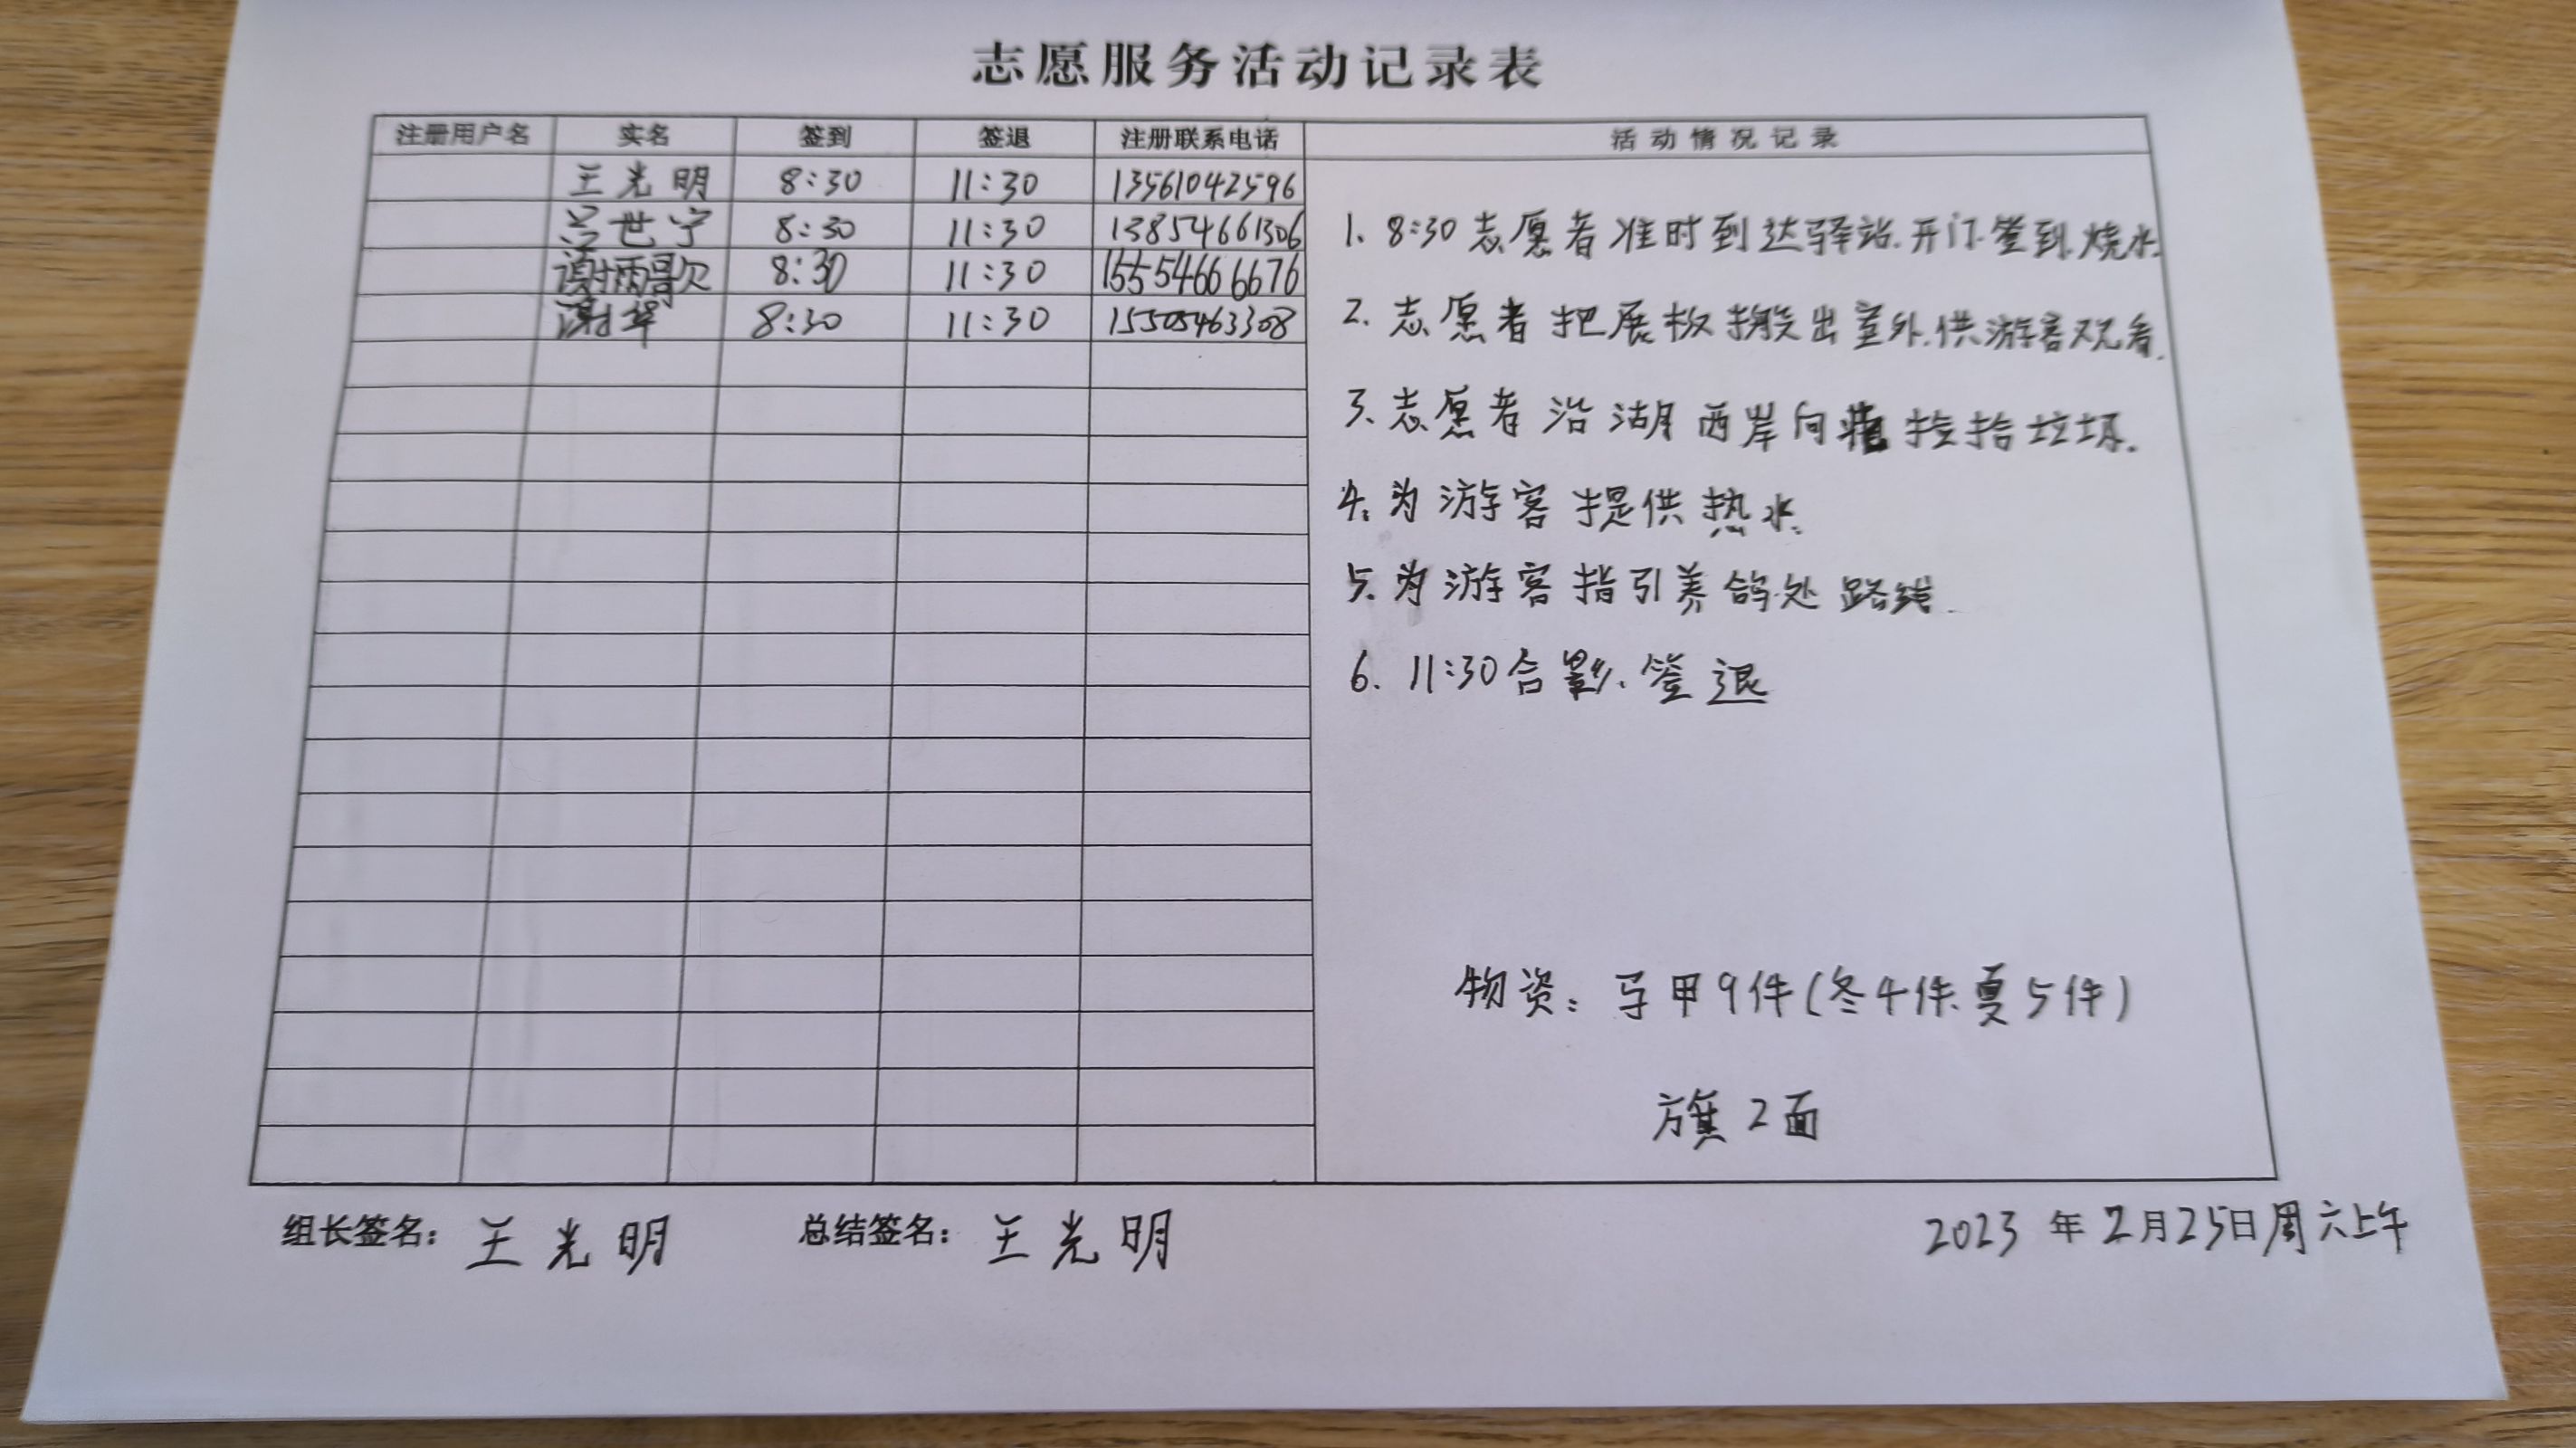 志愿服务活动记录表
注册用户名 实名 签到 签退 注册联系电话 活动情况记录
王光明 8:30 11:30 13561042596
世宁 8:30 11:30 13854661306
谢雨歌 8:30 11:30 15554666676
谢华 8:30 11:30 15505463308
1. 8:30志愿者准时到达驿站.开门.签到.烧水.
2. 志愿者把展板搬出室外.供游客观看.
3. 志愿者沿湖西岸向 捡拾垃圾.
4. 为游客提供热水.
5. 为游客指引养鸽处路线.
6. 11:30合影.签退
物资: 马甲9件(冬4件.夏5件)
旗2面
组长签名: 王光明 总结签名: 王光明 2023年2月25日周六上午